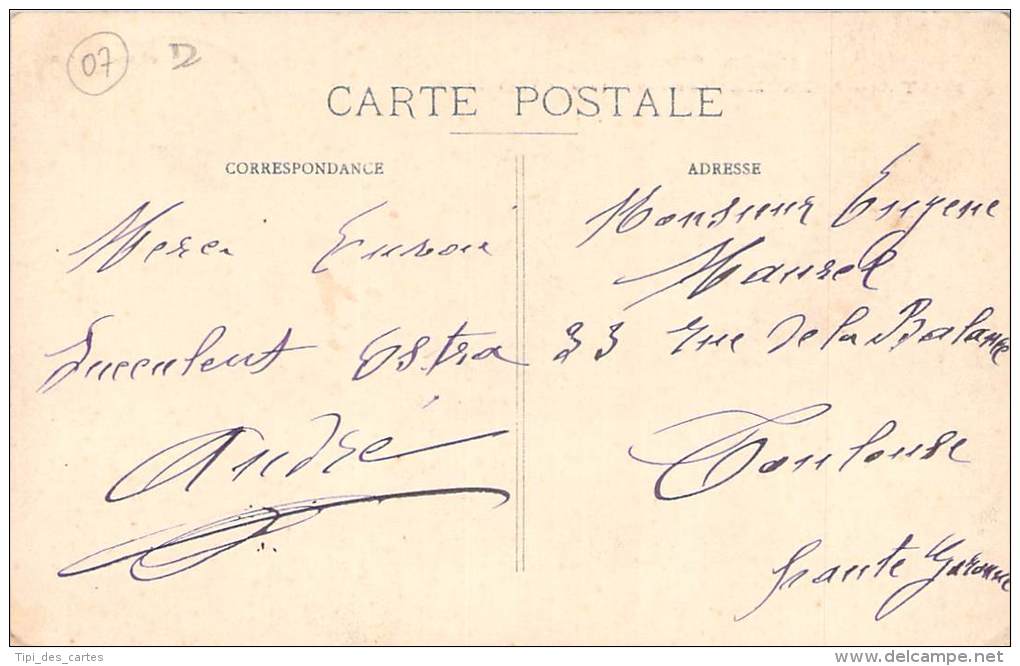 07
CARTE POSTALE
CORRESPONDANCE
Merci Envoi
Succulent Ostra
André
ADRESSE
Monsieur Eugene
Maurel
33 rue de la Balance
Toulouse
Haute Garonne
Tipi_des_cartes
delcampe.net